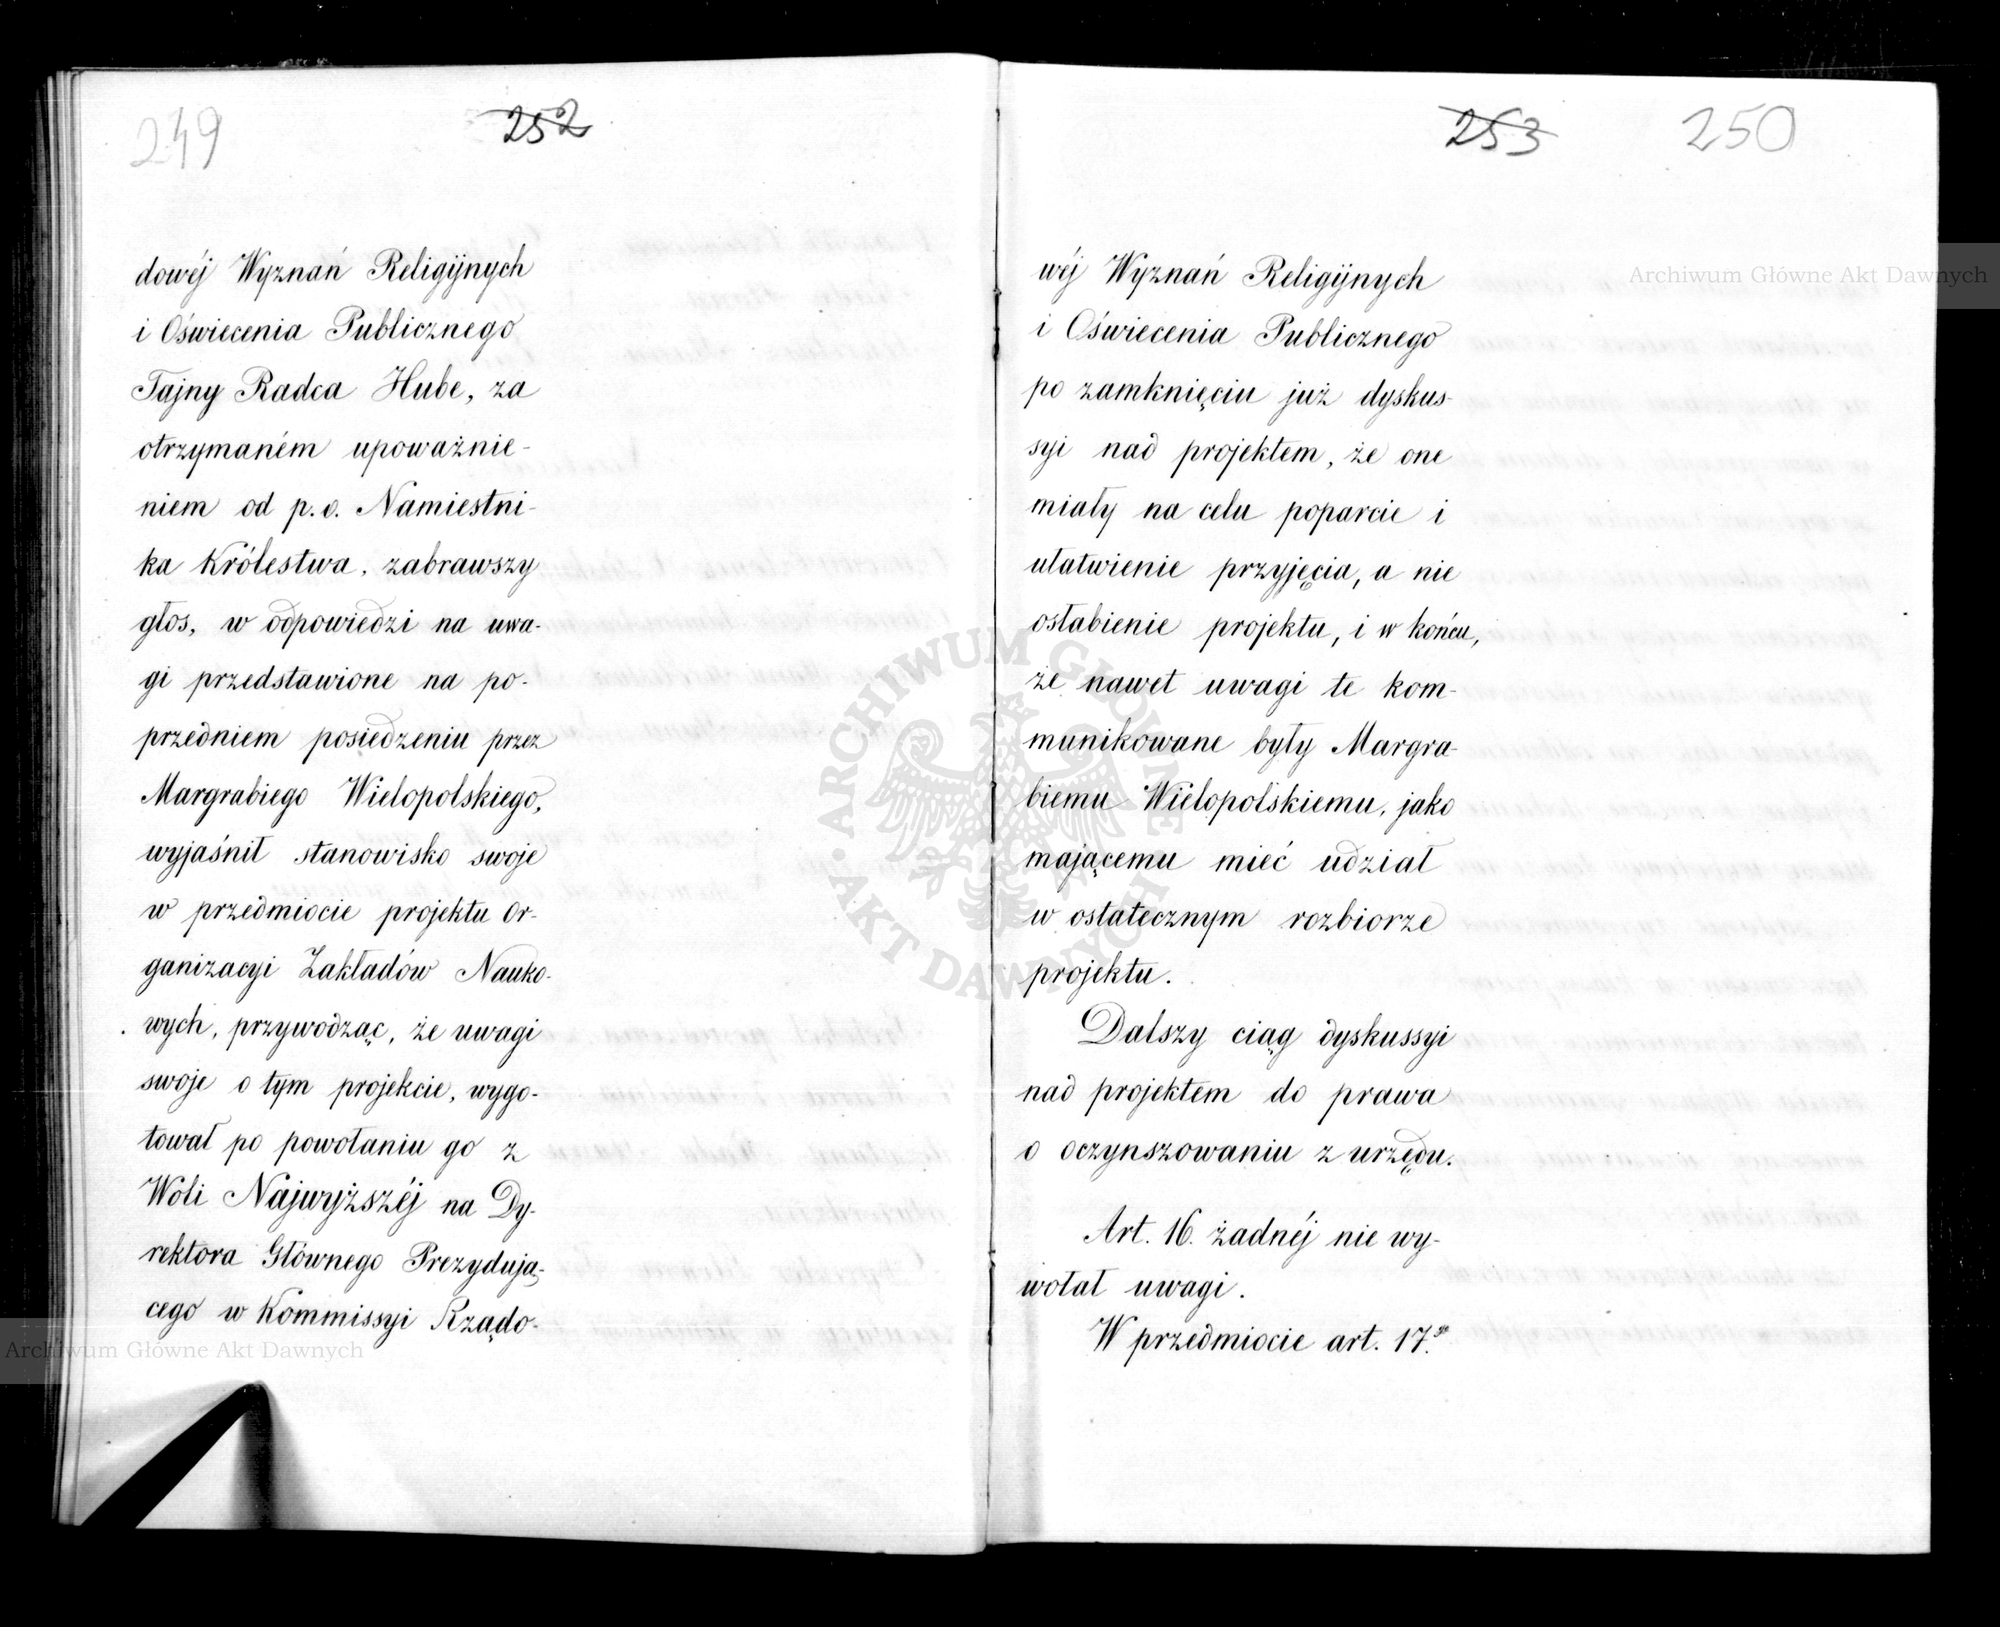 249
252
dowéj Wyznań Religijnych
i Oświecenia Publicznego
Tajny Radca Hube, za
otrzymaném upoważnie-
niem od p. o. Namiestni-
ka Królestwa, zabrawszy
głos, w odpowiedzi na uwa-
gi przedstawione na po-
przedniem posiedzeniu przez
Margrabiego Wielopolskiego,
wyjaśnił stanowisko swoje
w przedmiocie projektu or-
ganizacyi Zakładów Nauko-
wych, przywodząc, że uwagi
swoje o tym projekcie, wygo-
tował po powołaniu go z
Woli Najwyższéj na Dy-
rektora Głównego Prezydują-
cego w Kommissyi Rządo-
253
250
wéj Wyznań Religijnych
i Oświecenia Publicznego
po zamknięciu już dyskus-
syi nad projektem, że one
miały na celu poparcie i
ułatwienie przyjęcia, a nie
osłabienie projektu, i w końcu,
że nawet uwagi te kom-
munikowane były Margra-
biemu Wielopolskiemu, jako
mającemu mieć udział
w ostatecznym rozbiorze
projektu.
Dalszy ciąg dyskussyi
nad projektem do prawa
o oczynszowaniu z urzędu.
Art. 16. żadnéj nie wy-
wołał uwagi.
W przedmiocie art. 17.go
Archiwum Główne Akt Dawnych
Archiwum Główne Akt Dawnych
ARCHIWUM GŁÓWNE
AKT DAWNYCH